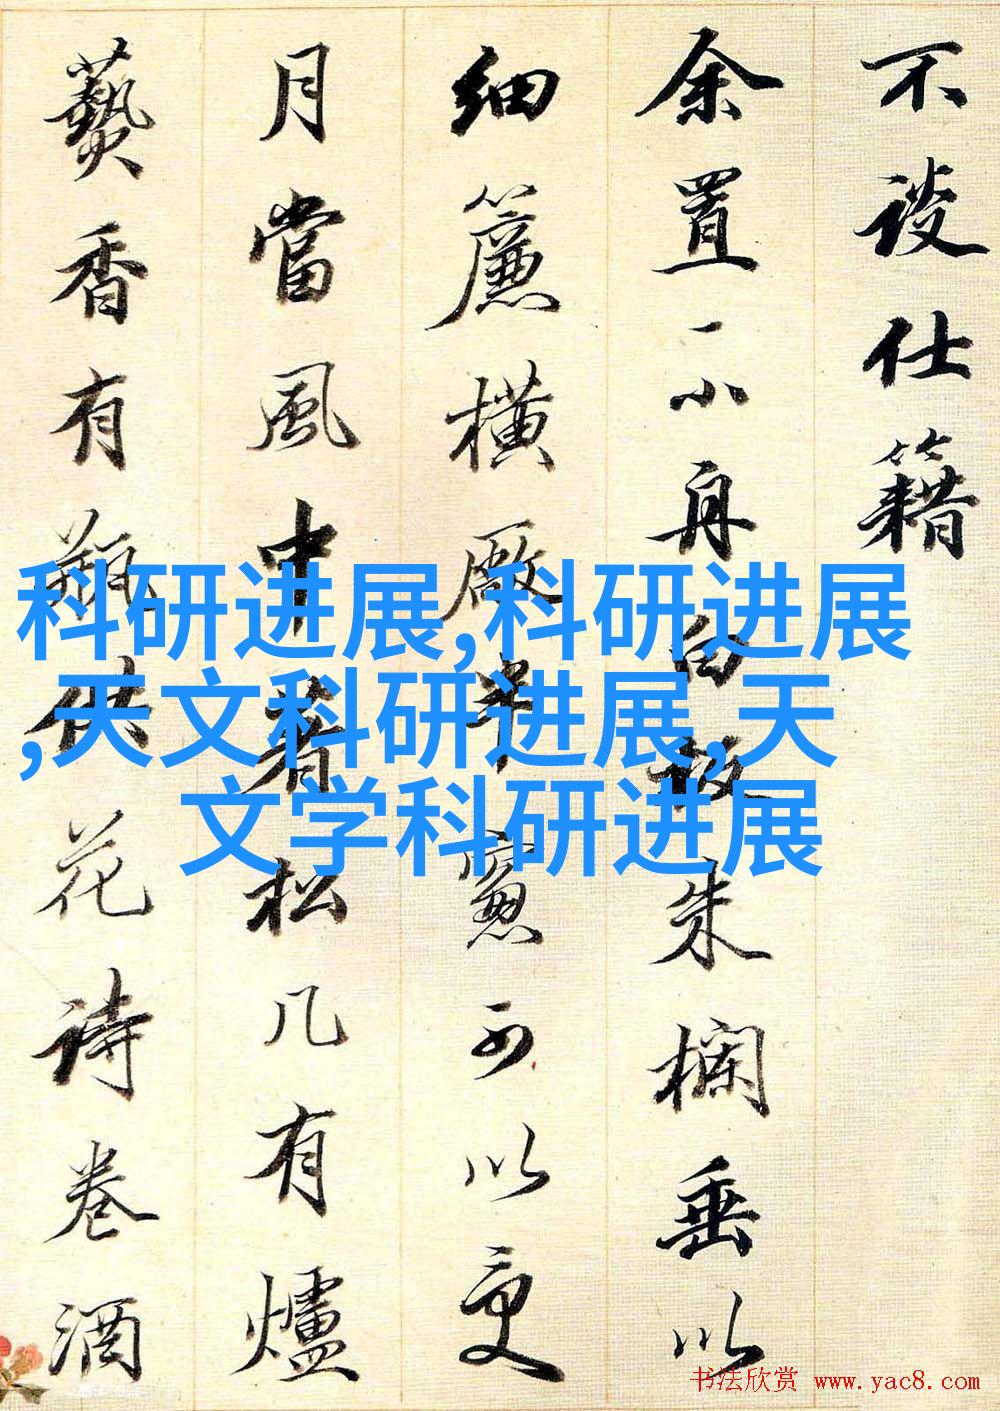 不談仕籍
余置一小舟白板朱欄垂以
細簾橫厰半窻可以更
月當風中著松几有爐
爇香有瓶供花詩卷酒
科研进展,科研进展
,天文科研进展,天
文学科研进展
书法欣赏 www.yac8.com